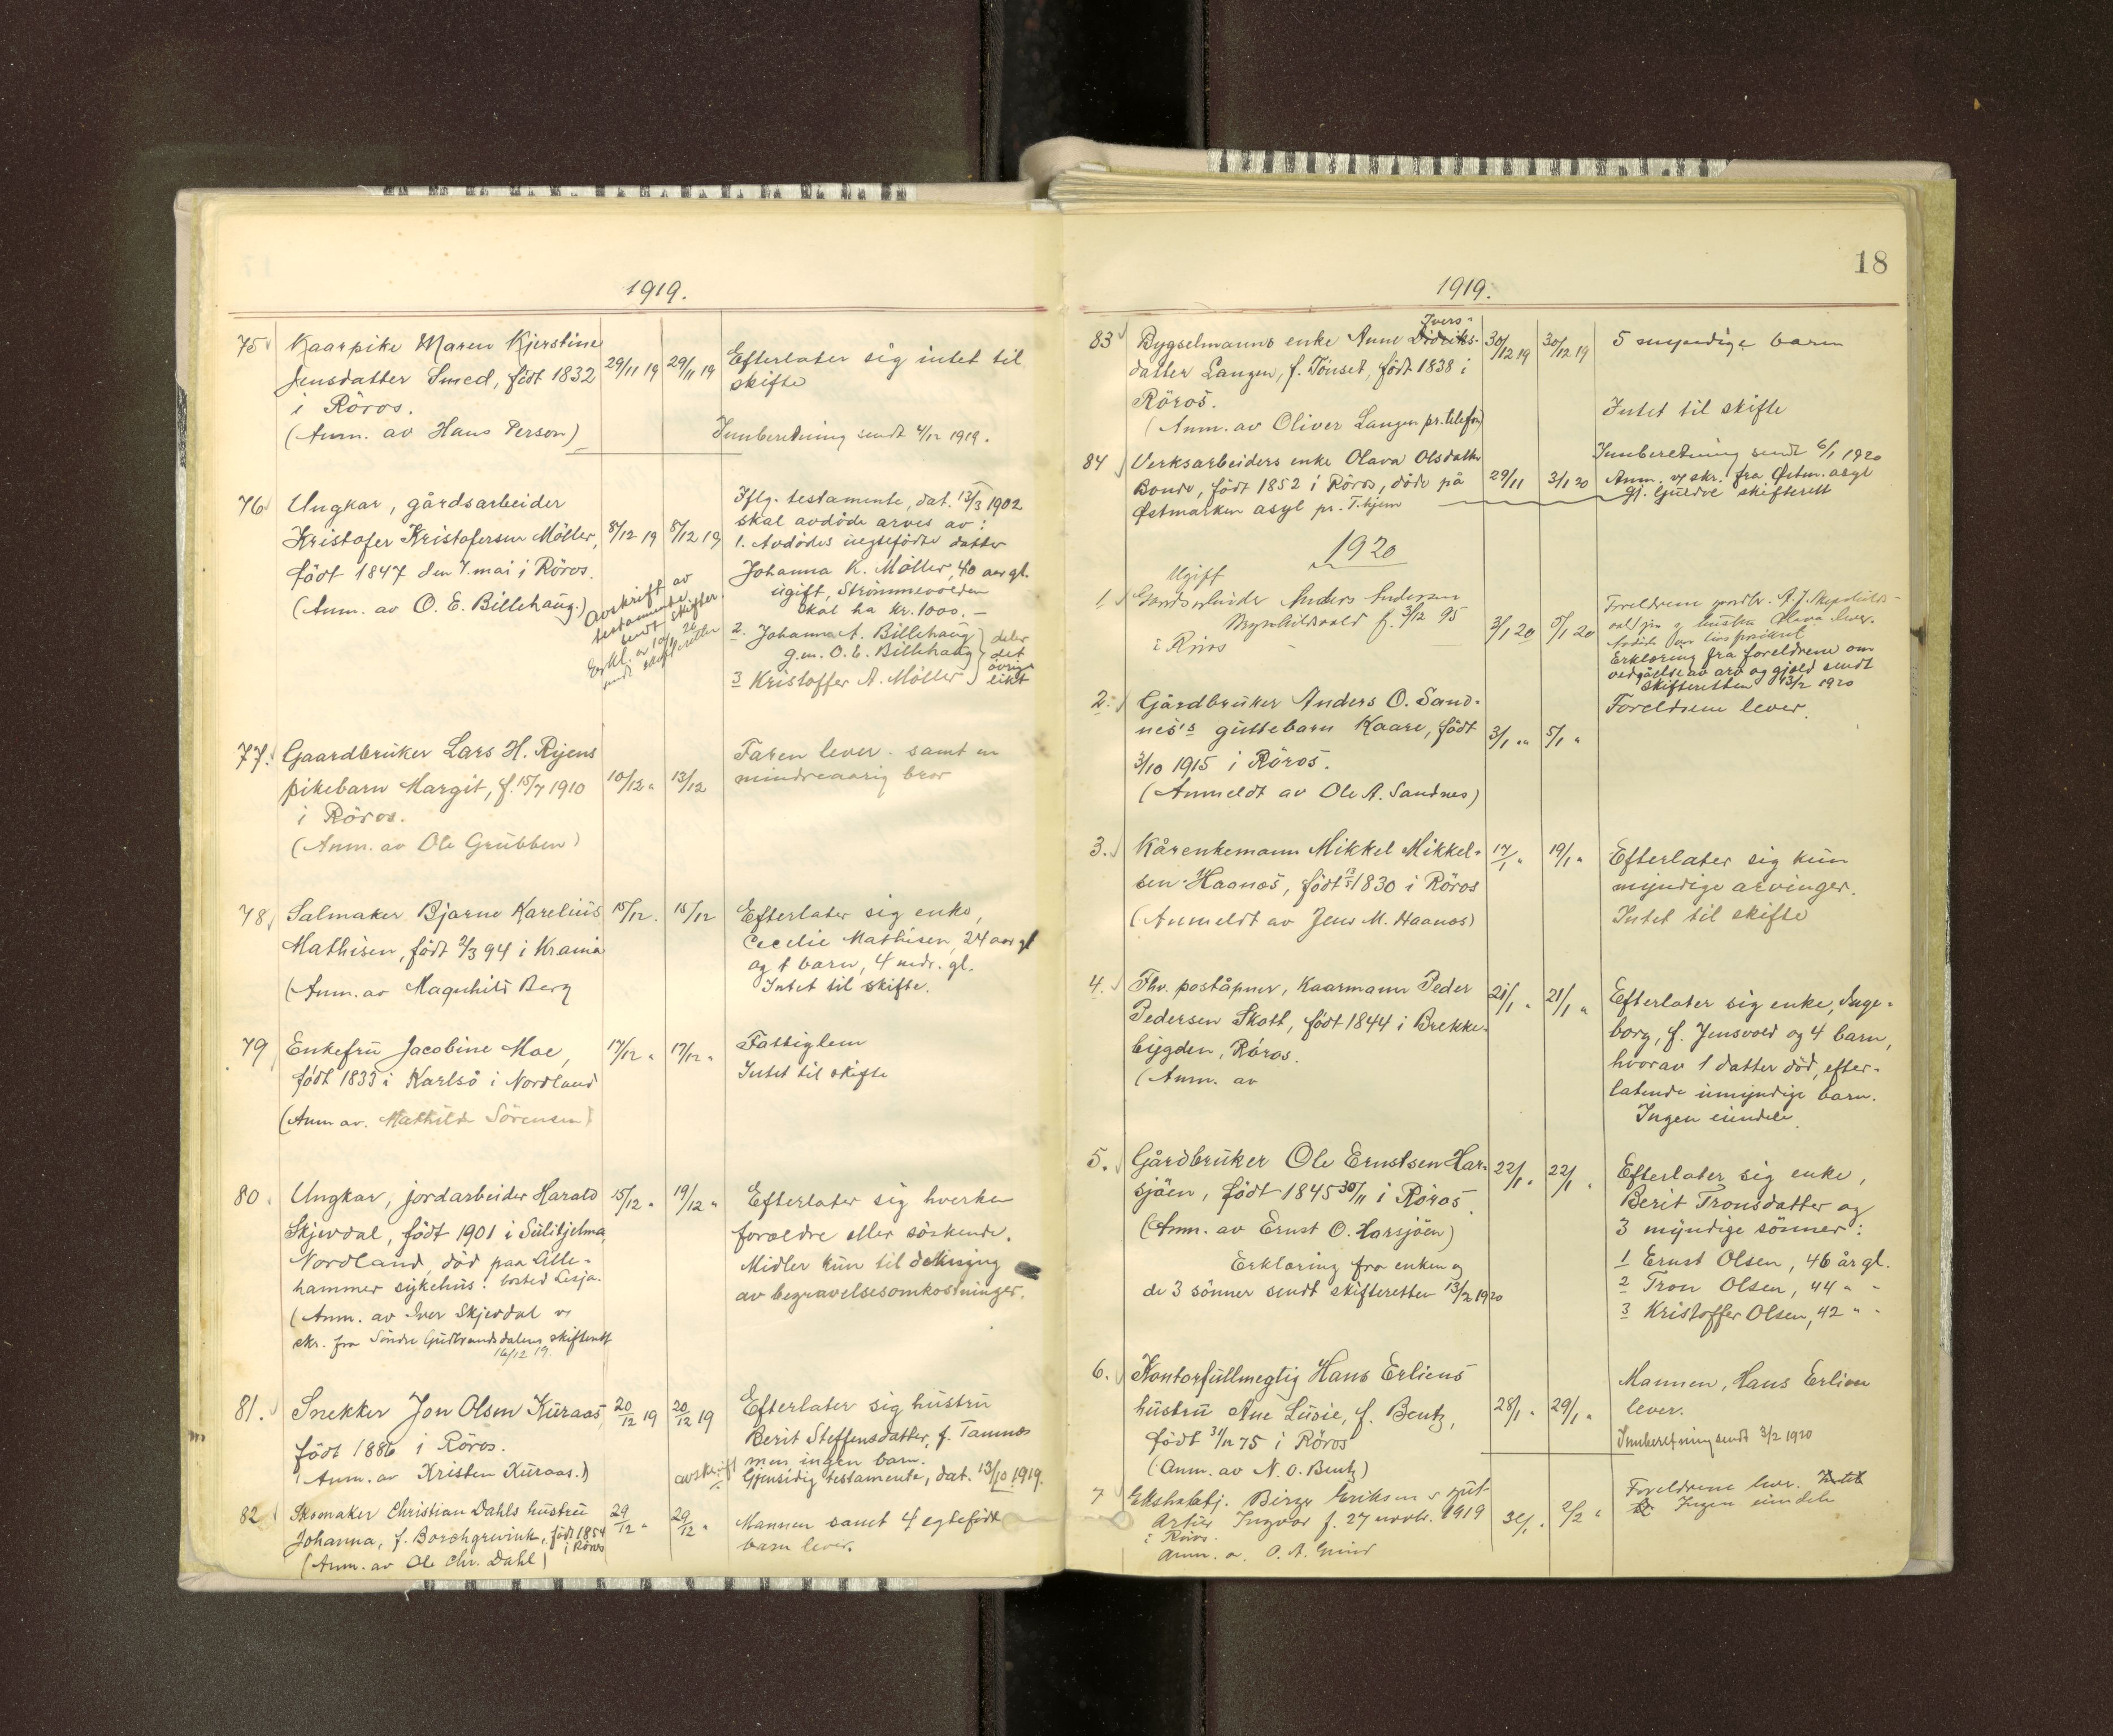 1919.
75 Kaarpike Maren Kjerstine
Jensdatter Smed, födt 1832
i Röros.
(Anm. av Hans Person)
29/11 19
29/11 19
Efterlater sig intet til
skifte
Innberetning sendt 4/12 1919.
76 Ungkar, gårdsarbeider
Kristofer Kristofersen Möller,
födt 1847 den 7. mai i Röros.
(Anm. av O. E. Billehaug.)
8/12 19
8/12 19
Avskrift av
testamente
sendt skifter.
Erkl. av 10/2 20
sendt skifteretten
Iflg. testamente, dat. 13/3 1902
skal avdöde arves av:
1. Avdödes uegtefödte datter
Johanna K. Möller, 40 aar gl.
ugift, Strömmevolden
skal ha kr. 1000. —
2. Johanna A. Billehaug
g.m. O. E. Billehaug
3 Kristoffer A. Möller
deler
det
övrige
likt
77. Gaardbruker Lars H. Ryens
pikebarn Margit, f. 15/7 1910
i Röros.
(Anm. av Ole Grubben)
10/12 "
13/12
Faren lever. samt en
mindreaarig bror
78 Salmaker Bjarne Karelius
Mathisen, födt 2/3 94 i Krania
(Anm. av Magnhild Berg
15/12 .
15/12
Efterlater sig enke,
Cecelie Mathisen, 24 aar gl
og 1 barn, 4 mdr. gl.
Intet til skifte.
79 Enkefru Jacobine Moe,
födt 1833 i Karlsö i Nordland
(Anm av. Mathilde Sörensen)
17/12 "
17/12 "
Fattiglem
Intet til skifte
80. Ungkar, jordarbeider Harald
Skjevdal, födt 1901 i Sulitjelma,
Nordland, död paa Lille-
hammer sykehus. bosted Lesja.
(Anm. av Iver Skjevdal v
skr. fra Söndre Gudbrandsdalens skifterett
16/12 19.
15/12 "
19/12 "
Efterlater sig hverken
foreldre eller söskende.
Midler kun til dekning
av begravelsesomkostninger.
81. Snekker Jon Olsen Kuraas
födt 1886 i Röros.
(Anm. av Kristen Kuraas.)
20/12 19
20/12 19
Efterlater sig hustru
Berit Steffensdatter, f. Tamnes
men ingen barn.
avskrift Gjensidig testamente, dat. 13/10 1919.
82 Skomaker Christian Dahls hustru
Johanna, f. Borchgrevink, födt 1854
i Röros
(Anm. av Ole Chr. Dahl)
29/12 "
29/12 "
Mannen samt 4 egtefödt
barn lever.
18
1919.
83 Bygselmanns enke Anne Didriks-
Ivers-
datter Langen, f. Tönset, födt 1838 i
Röros.
(Anm. av Oliver Langen pr. telefon)
30/12 19
30/12 19
5 myndige barn
Intet til skifte
Innberetning sendt 6/1 1920
84 Verksarbeiders enke Olava Olsdatter
Bonde, födt 1852 i Röros, döde på
Östmarken asyl pr. T.hjem
29/11
3/1 20
Anm. v/ skr. fra Östm. asyl
gj. Guldve skifterett
1920
Ugift
1 Gaardsarbeider Anders Andersen
f. 3/12 95
i Röros
3/1 20
5/1 20
Foreldrene
Erklæring fra foreldrene om
vedgåelse av arv og gjeld sendt
skifteretten 13/2 1920
2. Gårdbruker Anders O. Sand-
nes's guttebarn Kaare, födt
3/10 1915 i Röros.
(Anmeldt av Ole A. Sandnes)
3/1 "
5/1 "
Foreldrene lever.
3. Kårenkemann Mikkel Mikkel-
sen Haanes, födt 13/5 1830 i Röros
(Anmeldt av Jens M. Haanes)
17/1 "
19/1 "
Efterlater sig kun
myndige arvinger.
Intet til skifte
4. Fhv. poståpner, Kaarmann Peder
Pedersen Skott, födt 1844 i Brekke-
bygden, Röros.
(Anm. av
21/1 "
21/1 "
Efterlater sig enke, Inge-
borg, f. Jensvold og 4 barn,
hvorav 1 datter död, efter-
latende umyndige barn.
Ingen eiendele.
5. Gårdbruker Ole Ernstsen Har-
sjöen, födt 1845 30/11 i Röros.
(Anm. av Ernst O. Harsjöen)
Erklæring fra enken og
de 3 sönner sendt skifteretten 13/2 1920
22/1 "
22/1 "
Efterlater sig enke,
Berit Tronsdatter og
3 myndige sönner:
1 Ernst Olsen, 46 år gl.
2 Tron Olsen, 44 " "
3 Kristoffer Olsen, 42 " "
6. Kontorfullmegtig Hans Erliens
hustru Ane Lusie, f. Bentz,
födt 31/12 75 i Röros
(Anm. av N. O. Bentz)
28/1 "
29/1 "
Mannen, Hans Erlien
lever.
Innberetning sendt 3/2 1920
7 Birger Eriksens gut
Ingvar f. 27 novbr. 1919
i Röros.
Anm. a. O. A. Grind
31/1 .
2/2 "
Foreldrene lever. Intet
Ingen eiendele